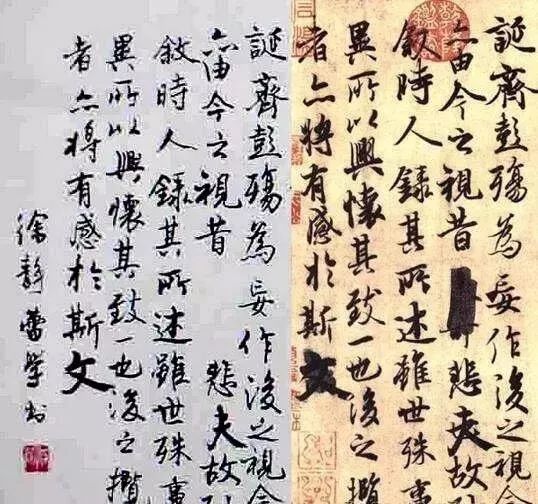 誕齊彭殤為妄作後之視今
亦由今之視昔悲夫故列
敘時人錄其所述雖世殊事
異所以興懷其致一也後之攬
者亦將有感於斯文
誕齊彭殤為妄作後之視今
亦由今之視昔悲夫故列
敘時人錄其所述雖世殊事
異所以興懷其致一也後之攬
者亦將有感於斯文
徐靜蕾學書